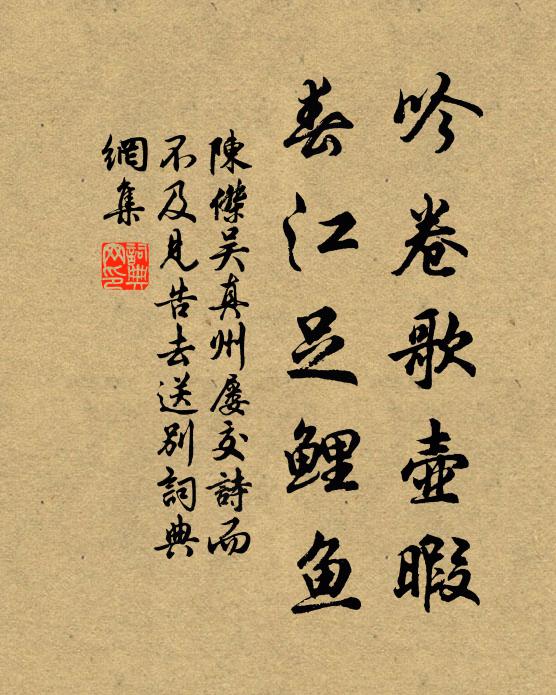 吟卷歌壺暇
春江足鯉魚
陳傑吴真州屢交詩而
不及見告去送别詞典
網集
詞典网印